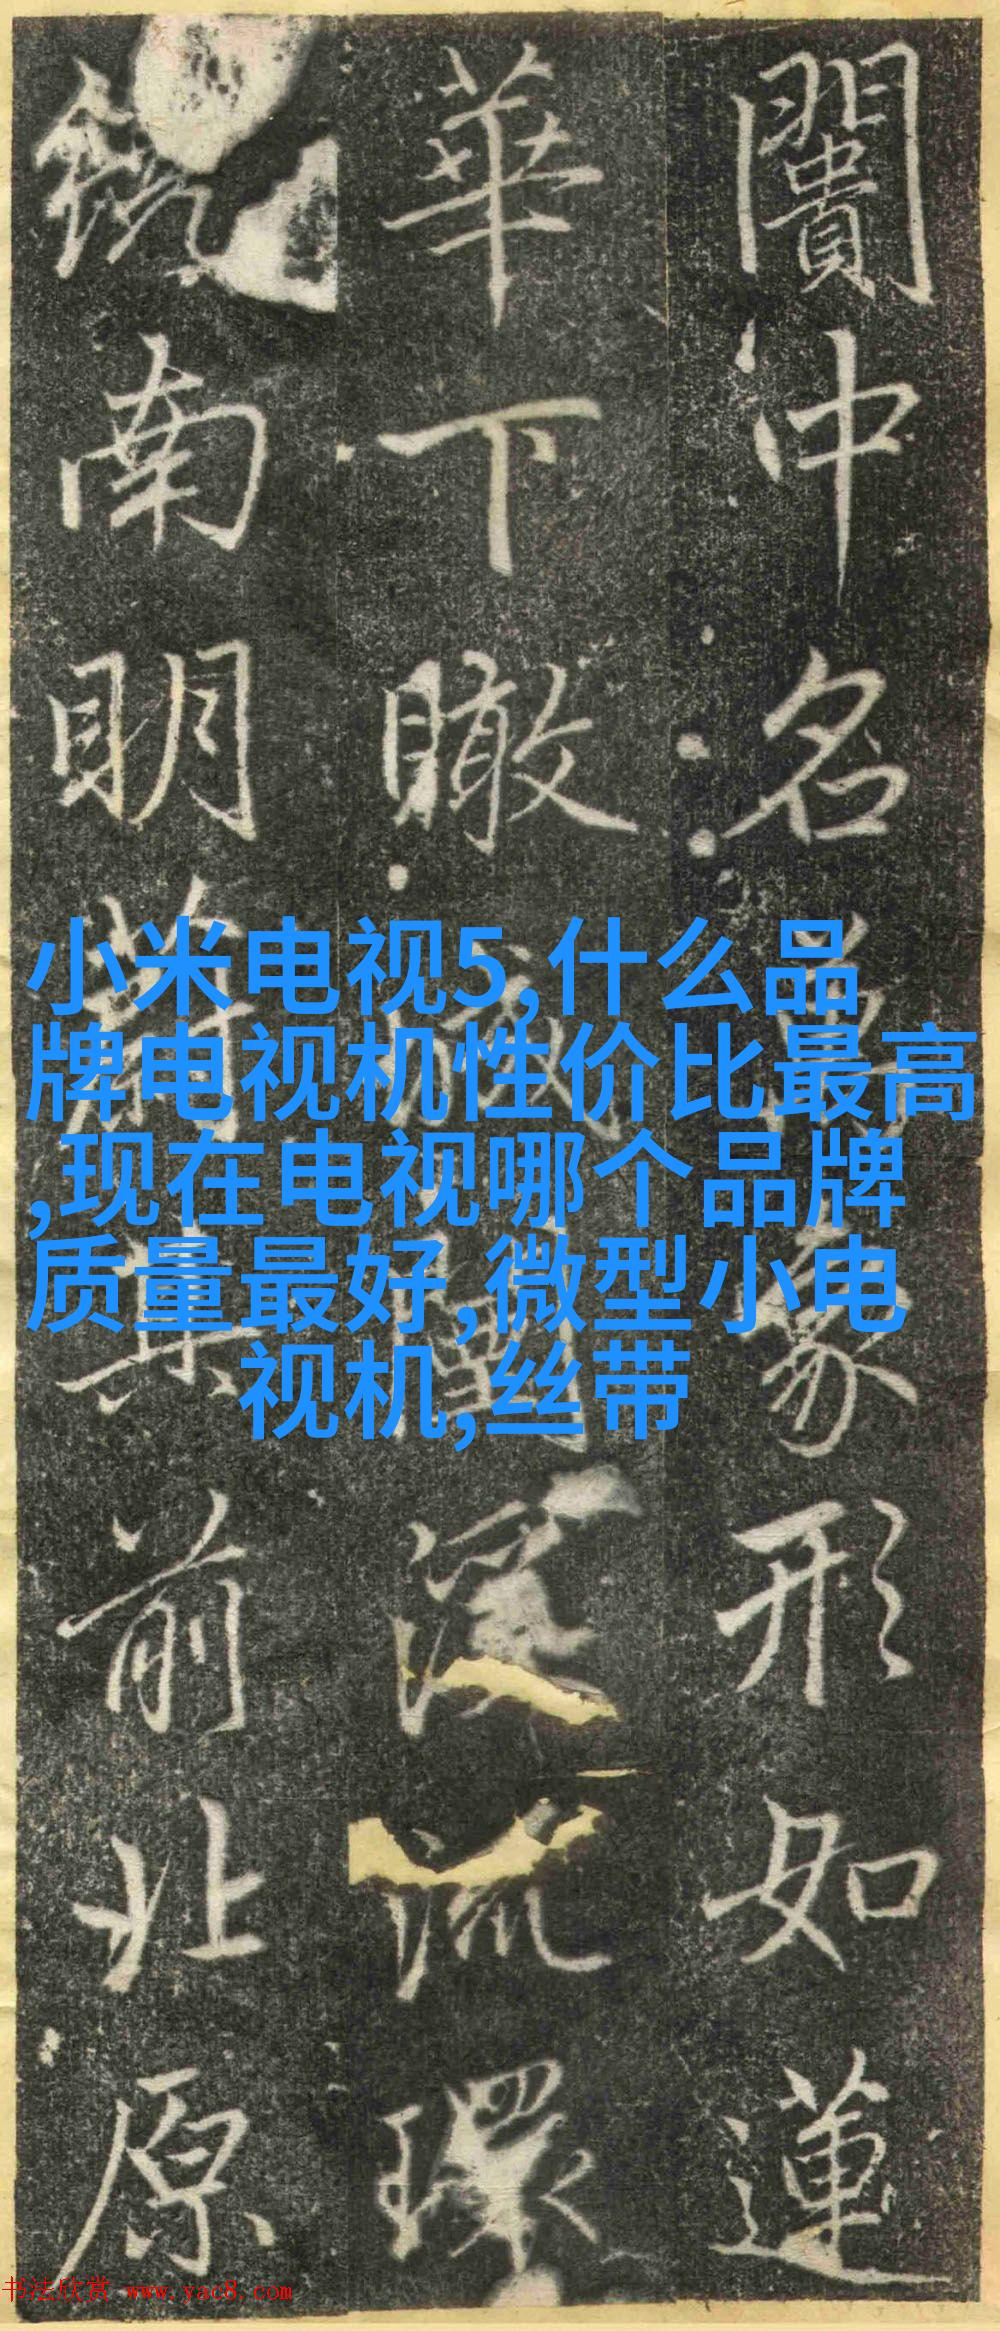 闠冲名象形如蓮
華下瞰深流環
南明其前北原
小米电视5,什么品
牌电视机性价比最高
,现在电视哪个品牌
质量最好,微型小电
视机,丝带
书法欣赏 www.yac8.com